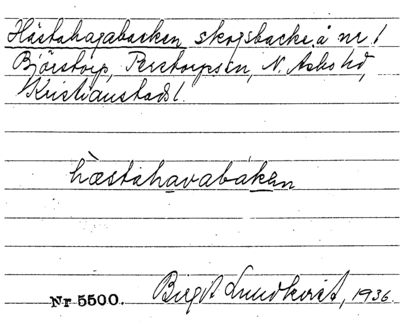 Hästahagabacken skogsbacke å nr 1
Björstorp, Perstorps sn, N. Åsbo hd,
Kristianstads l.
hæstahavabakęn
Nr 5500. Birgit Lundkvist, 1936.